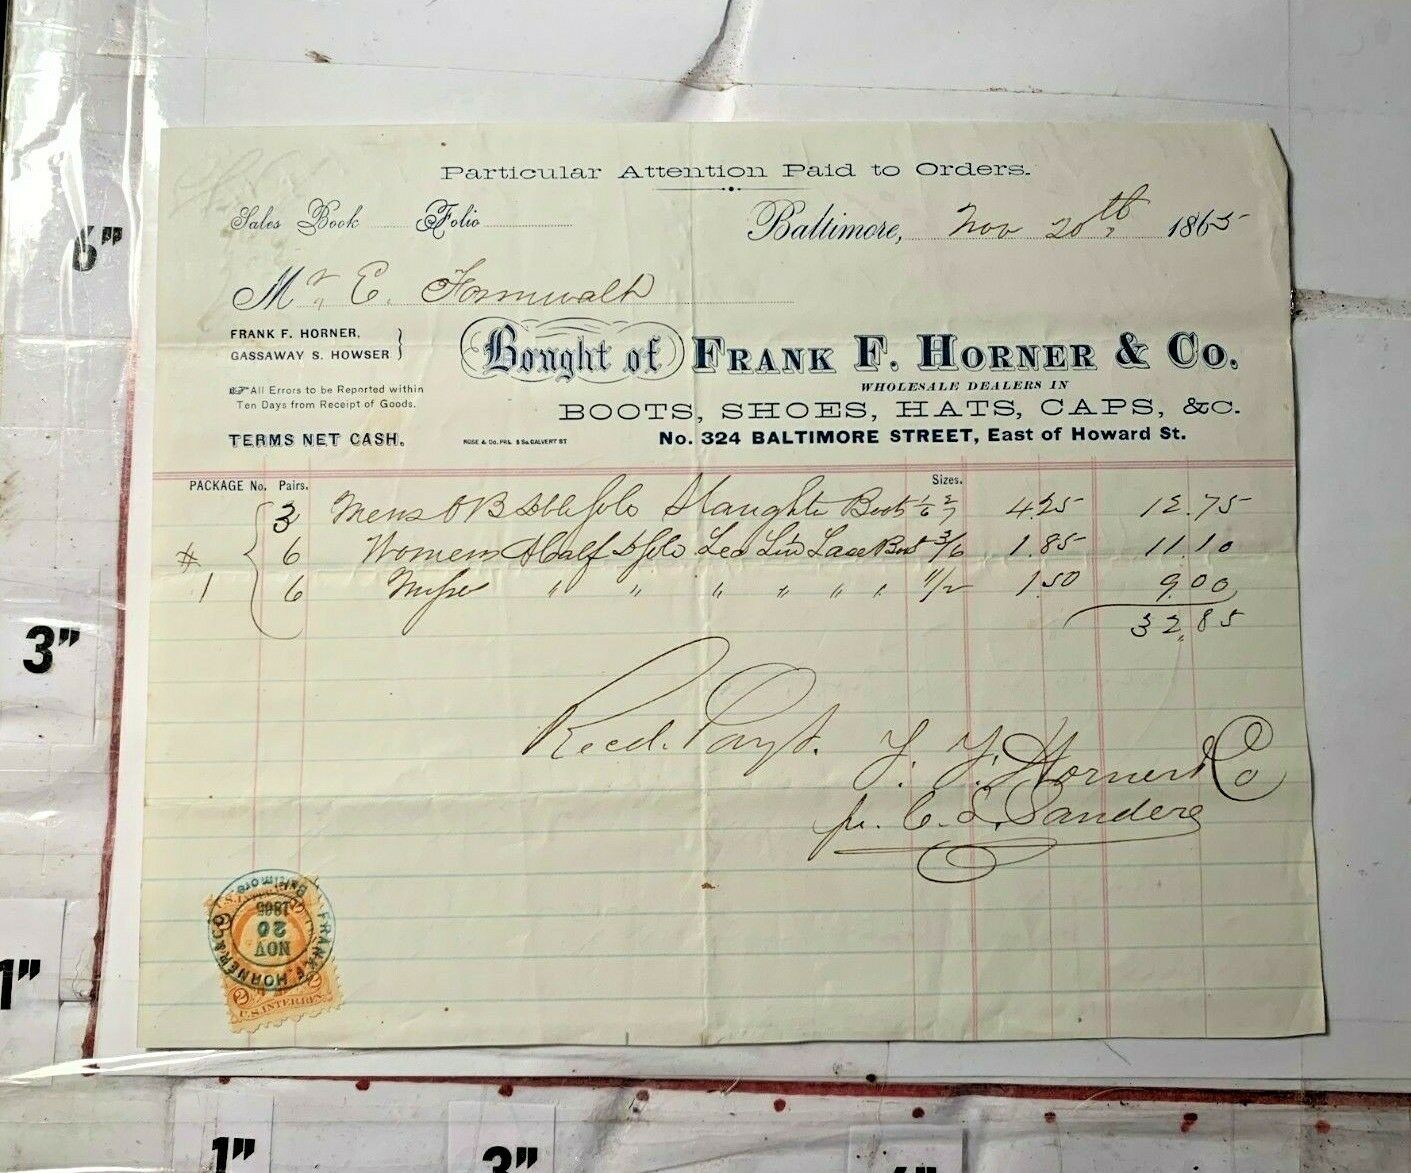 Particular Attention Paid to Orders.
Sales Book Folio
Baltimore, Nov 20th, 1865
Mr E.
FRANK F. HORNER,
GASSAWAY S. HOWSER
Bought of FRANK F. HORNER & CO.
WHOLESALE DEALERS IN
All Errors to be Reported within
Ten Days from Receipt of Goods.
BOOTS, SHOES, HATS, CAPS, &C.
TERMS NET CASH.
ROSE & Co. PRS. 8 So. CALVERT ST
No. 324 BALTIMORE STREET, East of Howard St.
PACKAGE No. Pairs. Sizes.
3 Mens Boots 4.25 12.75
# 6 Womens Half Lea Lace 3/6 1.85 11.10
1 6 Misses " " " " " " 11/2 1.50 9.00
32.85
Recd. Payt.
F. F. Horner & Co
pr. C. S. Sanders
FRANK F. HORNER & CO
Baltimore
NOV
20
1865
2 2
U.S. INTER. REV.
6"
3"
1"
1"
3"